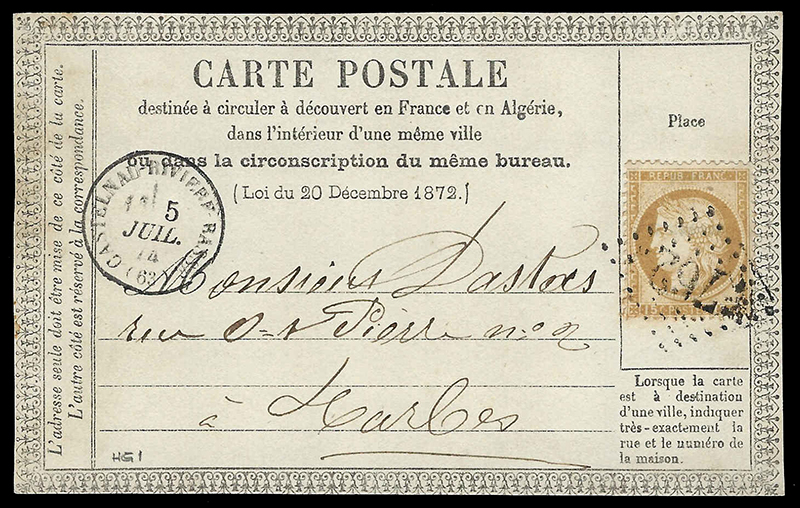 CARTE POSTALE
destinée à circuler à découvert en France et en Algérie,
dans l'intérieur d'une même ville
ou dans la circonscription du même bureau.
(Loi du 20 Décembre 1872.)
L'adresse seule doit être mise de ce côté de la carte.
L'autre côté est réservé à la correspondance.
Place
REPUB. FRANC.
15 C
CASTELNAU-RIVIERE-BASSE
5
JUIL.
74
(63)
Monsieur Dastres
rue St Pierre no 2
à Tarbes
Lorsque la carte
est à destination
d'une ville, indiquer
très-exactement la
rue et le numéro de
la maison.
HG1